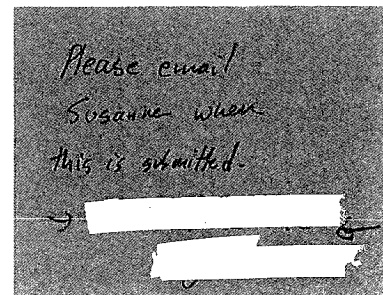 Please email
Susanne when
this is submitted.